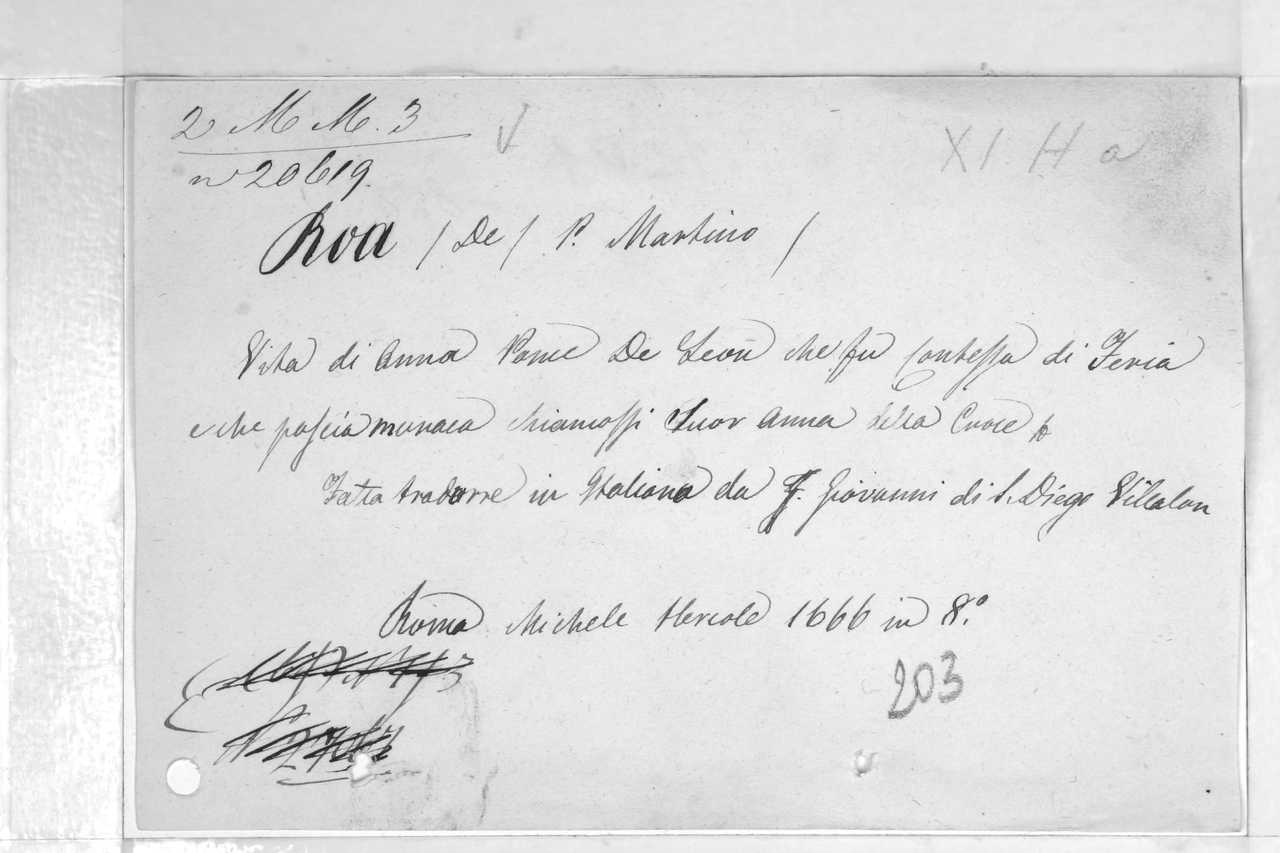 2 M M. 3 V XI H a
n° 20619.
Roa / De / P. Martino /
Vita di Anna Ponce De Leon che fu Contessa di Feria
e che poscia monaca chiamossi Suor Anna della Croce
Fatta tradurre in Italiano da F. Giovanni di S. Diego Villalon
Roma Michele Hercole 1666 in 8.°
203